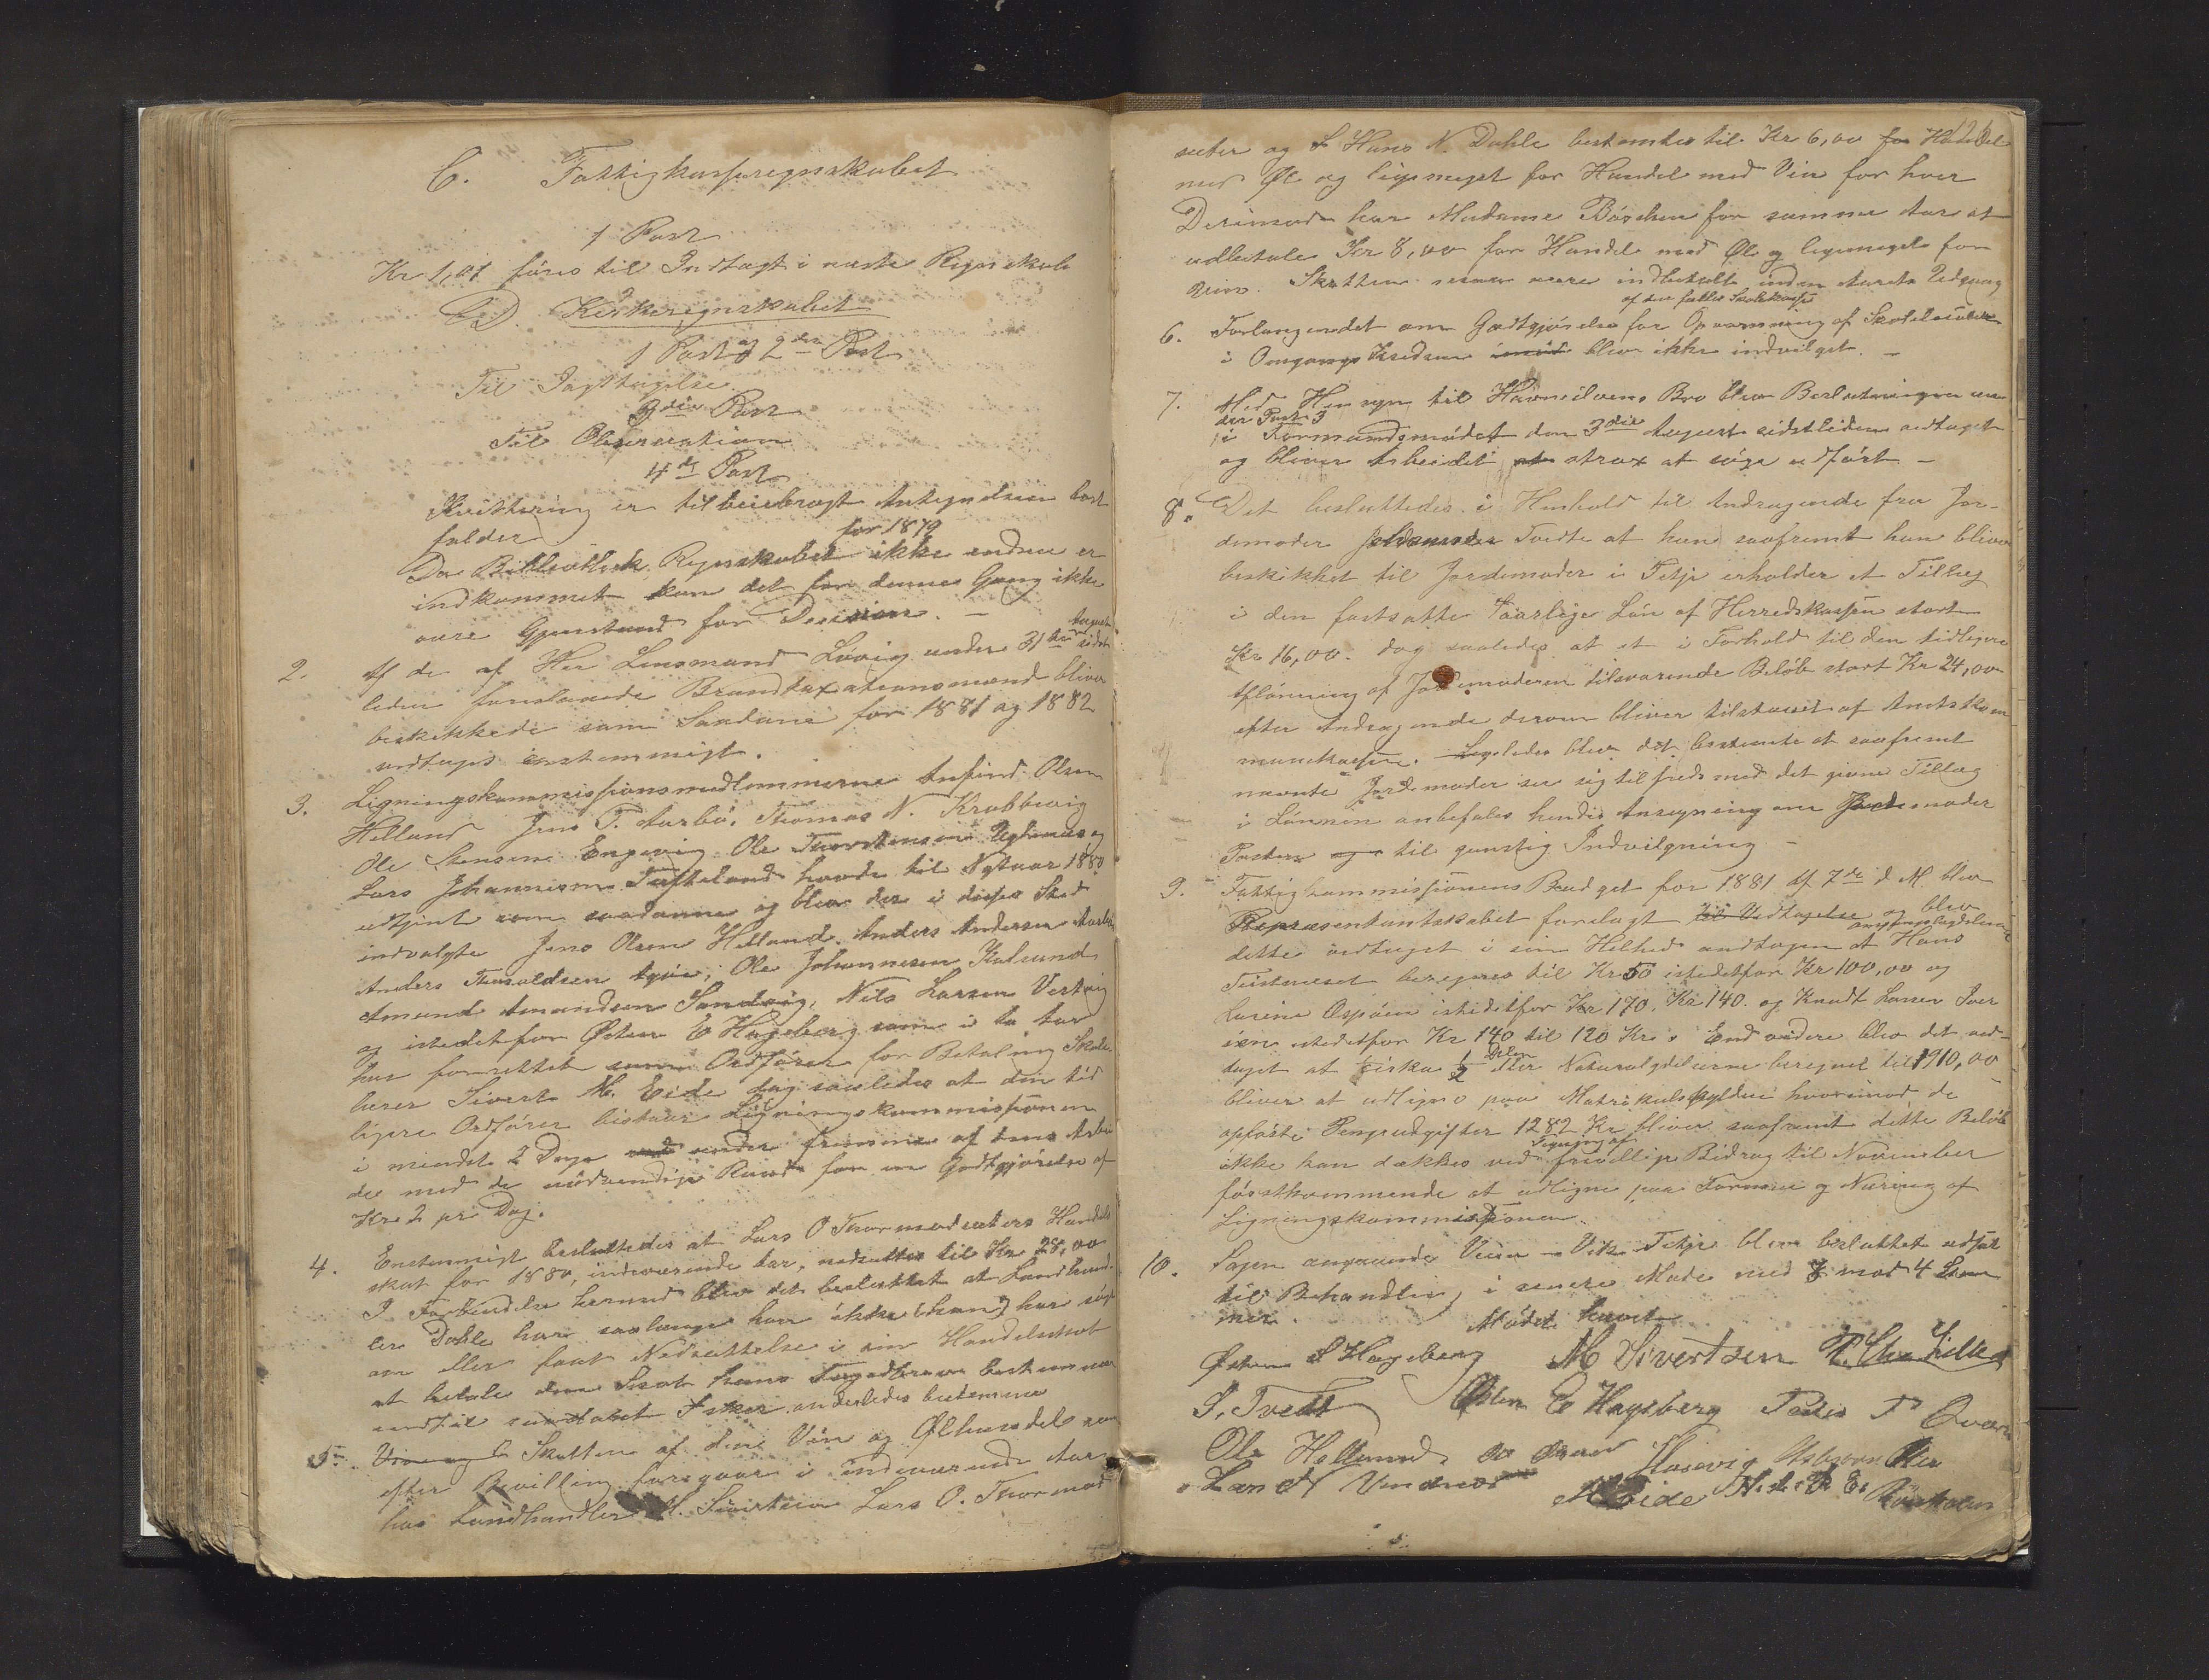 C. Fattigkasseregnskabet
1 Post
Kr 1,01 føres til Indtægt i næste Regnskab
D Kirkeregnskabet
1 Post og 2den Post
Til Iagttagelse
3die Post
Til Observation
4de Post
Kvittering er tilveiebragt Antegnelsen bort
falder
for 1879
Da Bibliothek Regnskabet ikke endnu er
indkommet kan det for denne Gang ikke
være Gjenstand for Decision. -
2. Af de af Her Lensmand Løvig under 31te August sidst
leden foreslaaede Brandtaxationsmænd bliver
beskikkede som Saadane for 1881 og 1882
vedtages enstemmigt.
3. Ligningskommissionsmedlemmerne Anfind Olsen
Helland Jens T. Aarbø, Thomas N. Krabbevig
Ole Stensen Engevig Ole Thorstensen og
Lars Johannesen Tufteland havde til Nytaar 1880
udtjent som saadanne og blev der i disses Sted
indvalgte Jens Olsen Helland Anders Andersen Aarbø
Anders Thoraldsen Ole Johannesen Kalsund
Amund Amundsen Sandvig, Nils Larsen Vestvig
og istedetfor Østen E Hageberg som i to Aar
har forrettet som Ordfører for Betaling Skole-
lærer Sivert M. Eide dog saaledes at den tid
ligere Ordfører bistaar Ligningskommissionen
i mindst 2 Dage under fremme af dens Arbei
de med de nødvendige Raad for en Godtgjørelse af
Kr 2 pr Dag.
4. Enstemmigt besluttedes at Lars O Thormodsæters Handels
skat for 1880, indeværende Aar, nedsættes til Kr 28,00
I Forbindelse hermed blev det besluttet at Landhand-
ler Dahle har saalænge han ikke (han) har søgt
om eller faaet Nedsættelse i sin Handelsskat
at betale den Skat hans bestemmer
indtil anderledes bestemme
5. Skatten af den Vin og Ølhandel som
efter Bevilling foregaar i indeværende Aar
hos Landhandler M. Sivertsen Lars O. Thormod
sæter og Hans N. Dahle bestemtes til Kr 6,00 for Handel
med Øl og ligemeget for Handel med Vin for hver
Derimod har Madame for samme Aar at
udbetale Kr 8,00 for Handel med Øl og ligemeget for
Vin. Skatten maa være indbetalt inden Aarets Udgang
af den fælles Skolekasse
6. Forlangendet om Godtgjørelse for Opvarmning af Skolelocaler
i Omgangs Kredsene blev ikke indvilget. -
7. Med Hensyn til Bro blev Beslutningen un
der Post 3
i Formandsmødet den 3die August sidstleden vedtaget
og bliver Arbeidet strax at søge udført -
8. Det besluttedes i Henhold til Andragende fra Jor-
demoder Tvedte at hun saafremt hun bliver
beskikket til Jordemoder i Fitje erholder et Tillæg
i den fastsatte aarlige Løn af Herredskassen stort
Kr 16,00. dog saaledes at et i Forhold til den tidligere
Aflønning af Jordemoderen tilsvarende Beløb stort Kr 24,00
efter Andragende derom bliver tilstaaet af Amtskom
munekassen. Ligeledes blev det bestemte at saafremt
nævnte Jordemoder ser sig tilfreds med det givne Tillæg
i Lønnen anbefales hendes Ansøgning om Jordemoder
Posten til gunstig Indvilgning -
9. Fattigkommissionens Budget for 1881 af 7de d. M. blev
Repræsentantskabet forelagt til Vedtagelse og blev
dette vedtaget i sin Helhed undtagen at Hans
beregnes til Kr 50 istedetfor Kr 100,00 og
Larine Ospøen istedetfor Kr 170, Kr 140. og Knudt Larsen Iver
sen istedetfor Kr 140 til 120 Kr. Endvidere blev det ved-
taget at cirka 1/2 Delen eller Naturalydelserne beregnet til 1910,00
bliver at udligne paa Matrikulskylden hvorimod de
opførte Pengeudgifter 1282 Kr bliver saafremt dette Beløb
Tegning af
ikke kan dækkes ved frivillige Bidrag til November
førstkommende at udligne paa Formue og Næring af
Ligningskommissionen.
10. Sagen angaaende Veien Vik - Fitje blev besluttet udsat
til Behandling i senere Møde med 7 mod 4 Stem
mer.
Mødet hævet
Østen S Hageberg M Sivertsen
S. Tvedt Østen E Hageberg
Ole Helland
M Eide